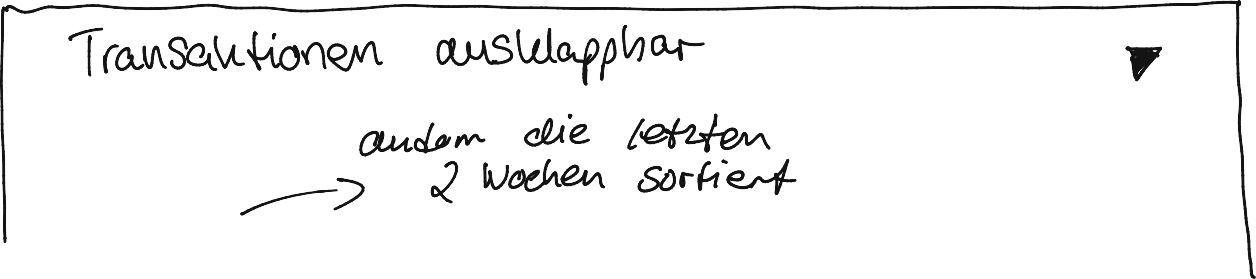 Transaktionen ausklappbar
die letzten
2 Wochen sortiert